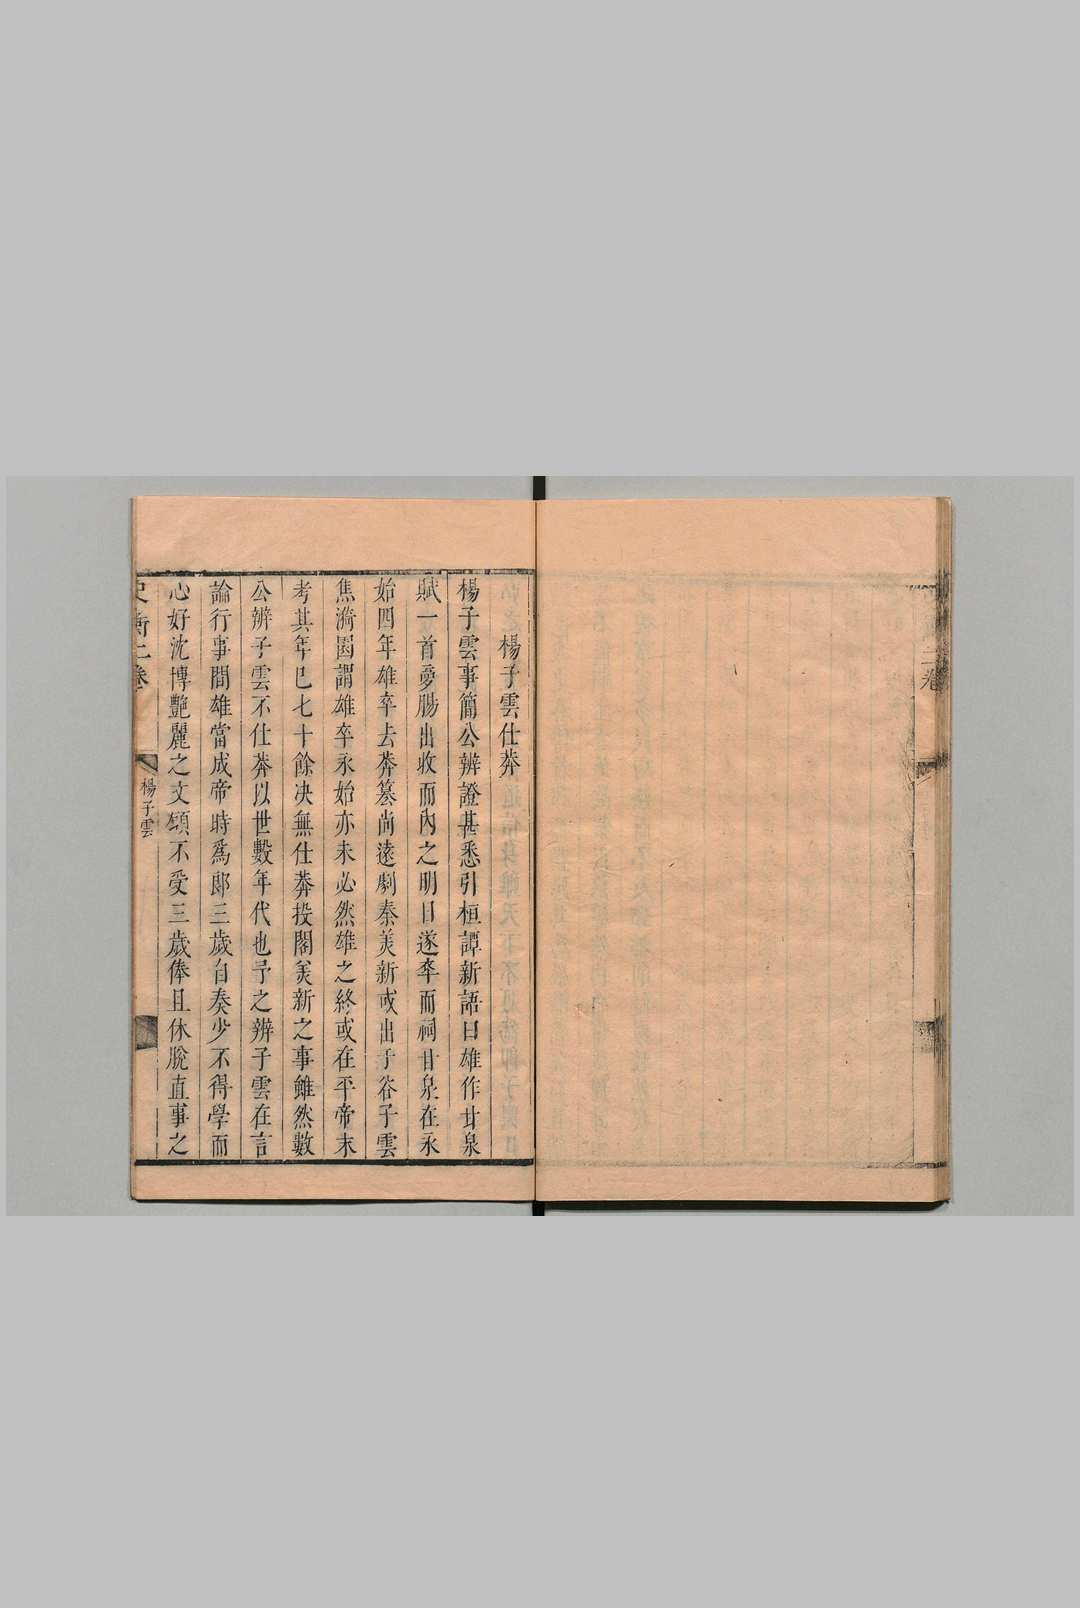 楊子雲仕莽
楊子雲事簡公辨證甚悉引桓譚新語曰雄作甘泉
賦一首夢腸出收而內之明日遂卒而祠甘泉在永
始四年雄卒去莽篡尚遠劇秦美新或出于谷子雲
焦漪園謂雄卒永始亦未必然雄之終或在平帝末
考其年巳七十餘决無仕莽投閣美新之事雖然數
公辨子雲不仕莽以世數年代也予之辨子雲在言
論行事間雄當成帝時爲郎三歲自奏少不得學而
心好沈博艷麗之文願不受三歲俸且休脫直事之
史衡二卷
楊子雲
二卷